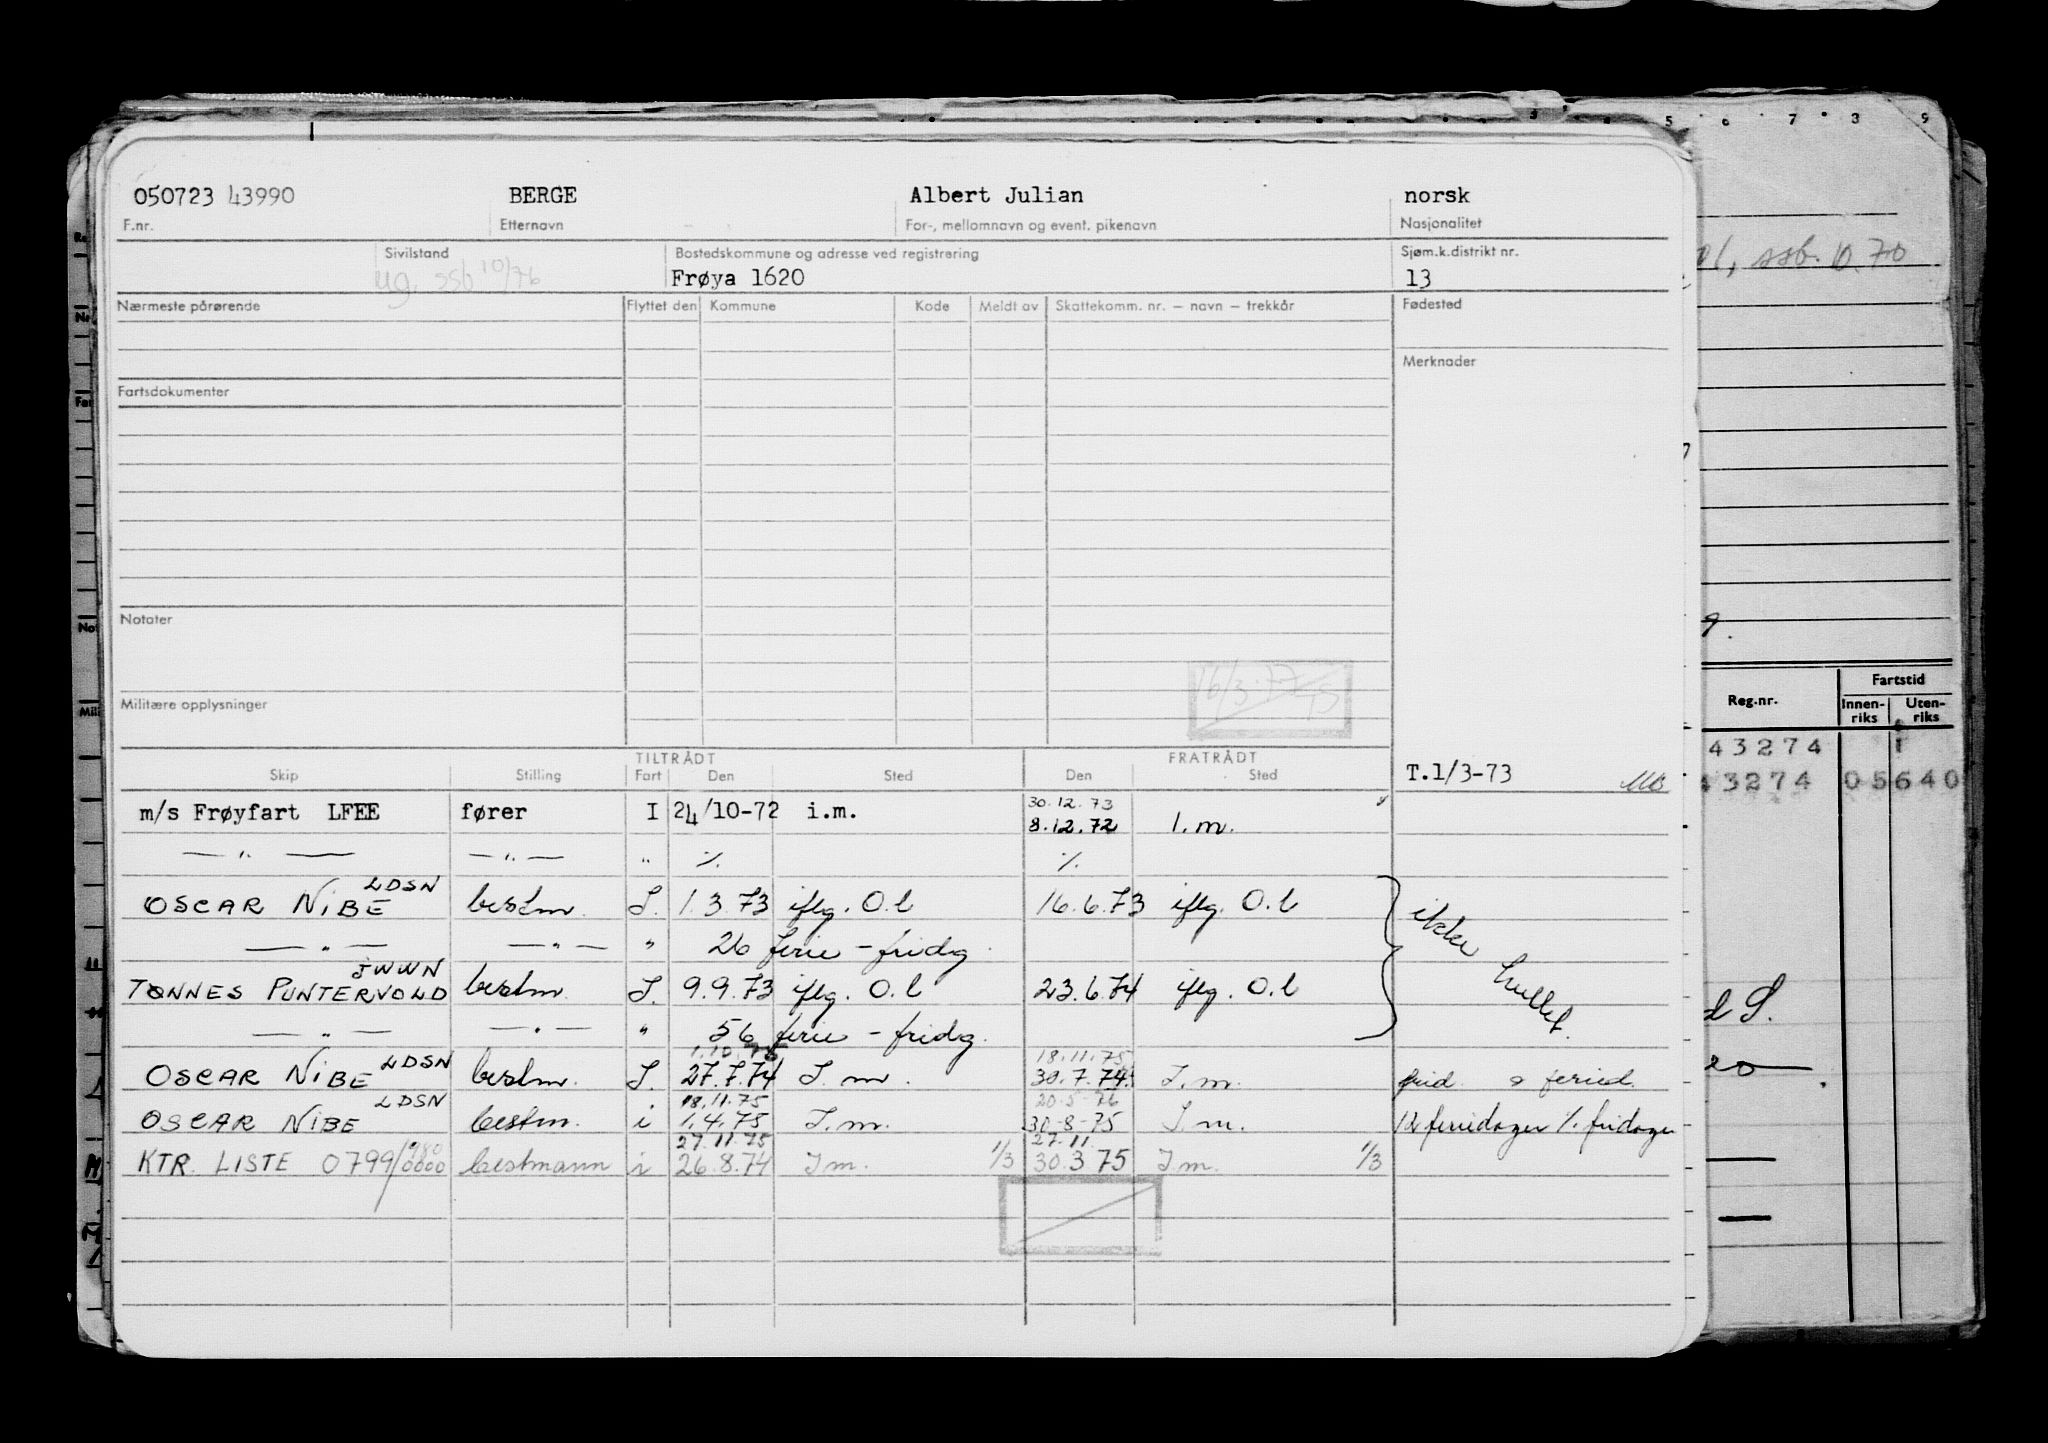 050723 43990 BERGE Albert Julian norsk
F.nr. Etternavn For-, mellomnavn og event. pikenavn Nasjonalitet
Sivilstand Bostedskommune og adresse ved registrering Sjøm.k.distrikt nr.
ug. ssb 10/76 Frøya 1620 13
Nærmeste pårørende Flyttet den Kommune Kode Meldt av Skattekomm. nr. – navn – trekkår Fødested
Merknader
Fartsdokumenter
Notater
16/3-77
Militære opplysninger
TILTRÅDT FRATRÅDT
Skip Stilling Fart Den Sted Den Sted
T.1/3-73
30.12.73
m/s Frøyfart LFEE fører I 24/10-72 i.m. 8.12.72 I.m.
— " — — " — " ./. ./.
LDSN
OSCAR NIBE bestm. I. 1.3.73 iflg. O.l 16.6.73 iflg. O.l ikke
— " — — " — " 26 ferie - fridg.
JWWN
TØNNES PUNTERVOLD bestm. I. 9.9.73 iflg. O.l 23.6.74 iflg. O.l hullet.
— " — — " — " 56 ferie - fridg.
1.10.75 18.11.75
OSCAR NIBE LDSN bestm. I. 27.7.74 I.m. 30.7.74 I.m. frid. o feried.
LDSN 18.11.75 20-5-76
OSCAR NIBE bestm. i 1.4.75 I.m. 30-8-75 I.m. feriedager ./. fridager
980 27.11.75 27.11.
KTR. LISTE 0799/0000 bestmann i 26.8.74 I m. 1/3 30.3 75 I m. 1/3
5 6 7 8 9
ssb. 10.70
Reg.nr. Fartstid
Innen-riks Uten-riks
43274 1
43274 05640